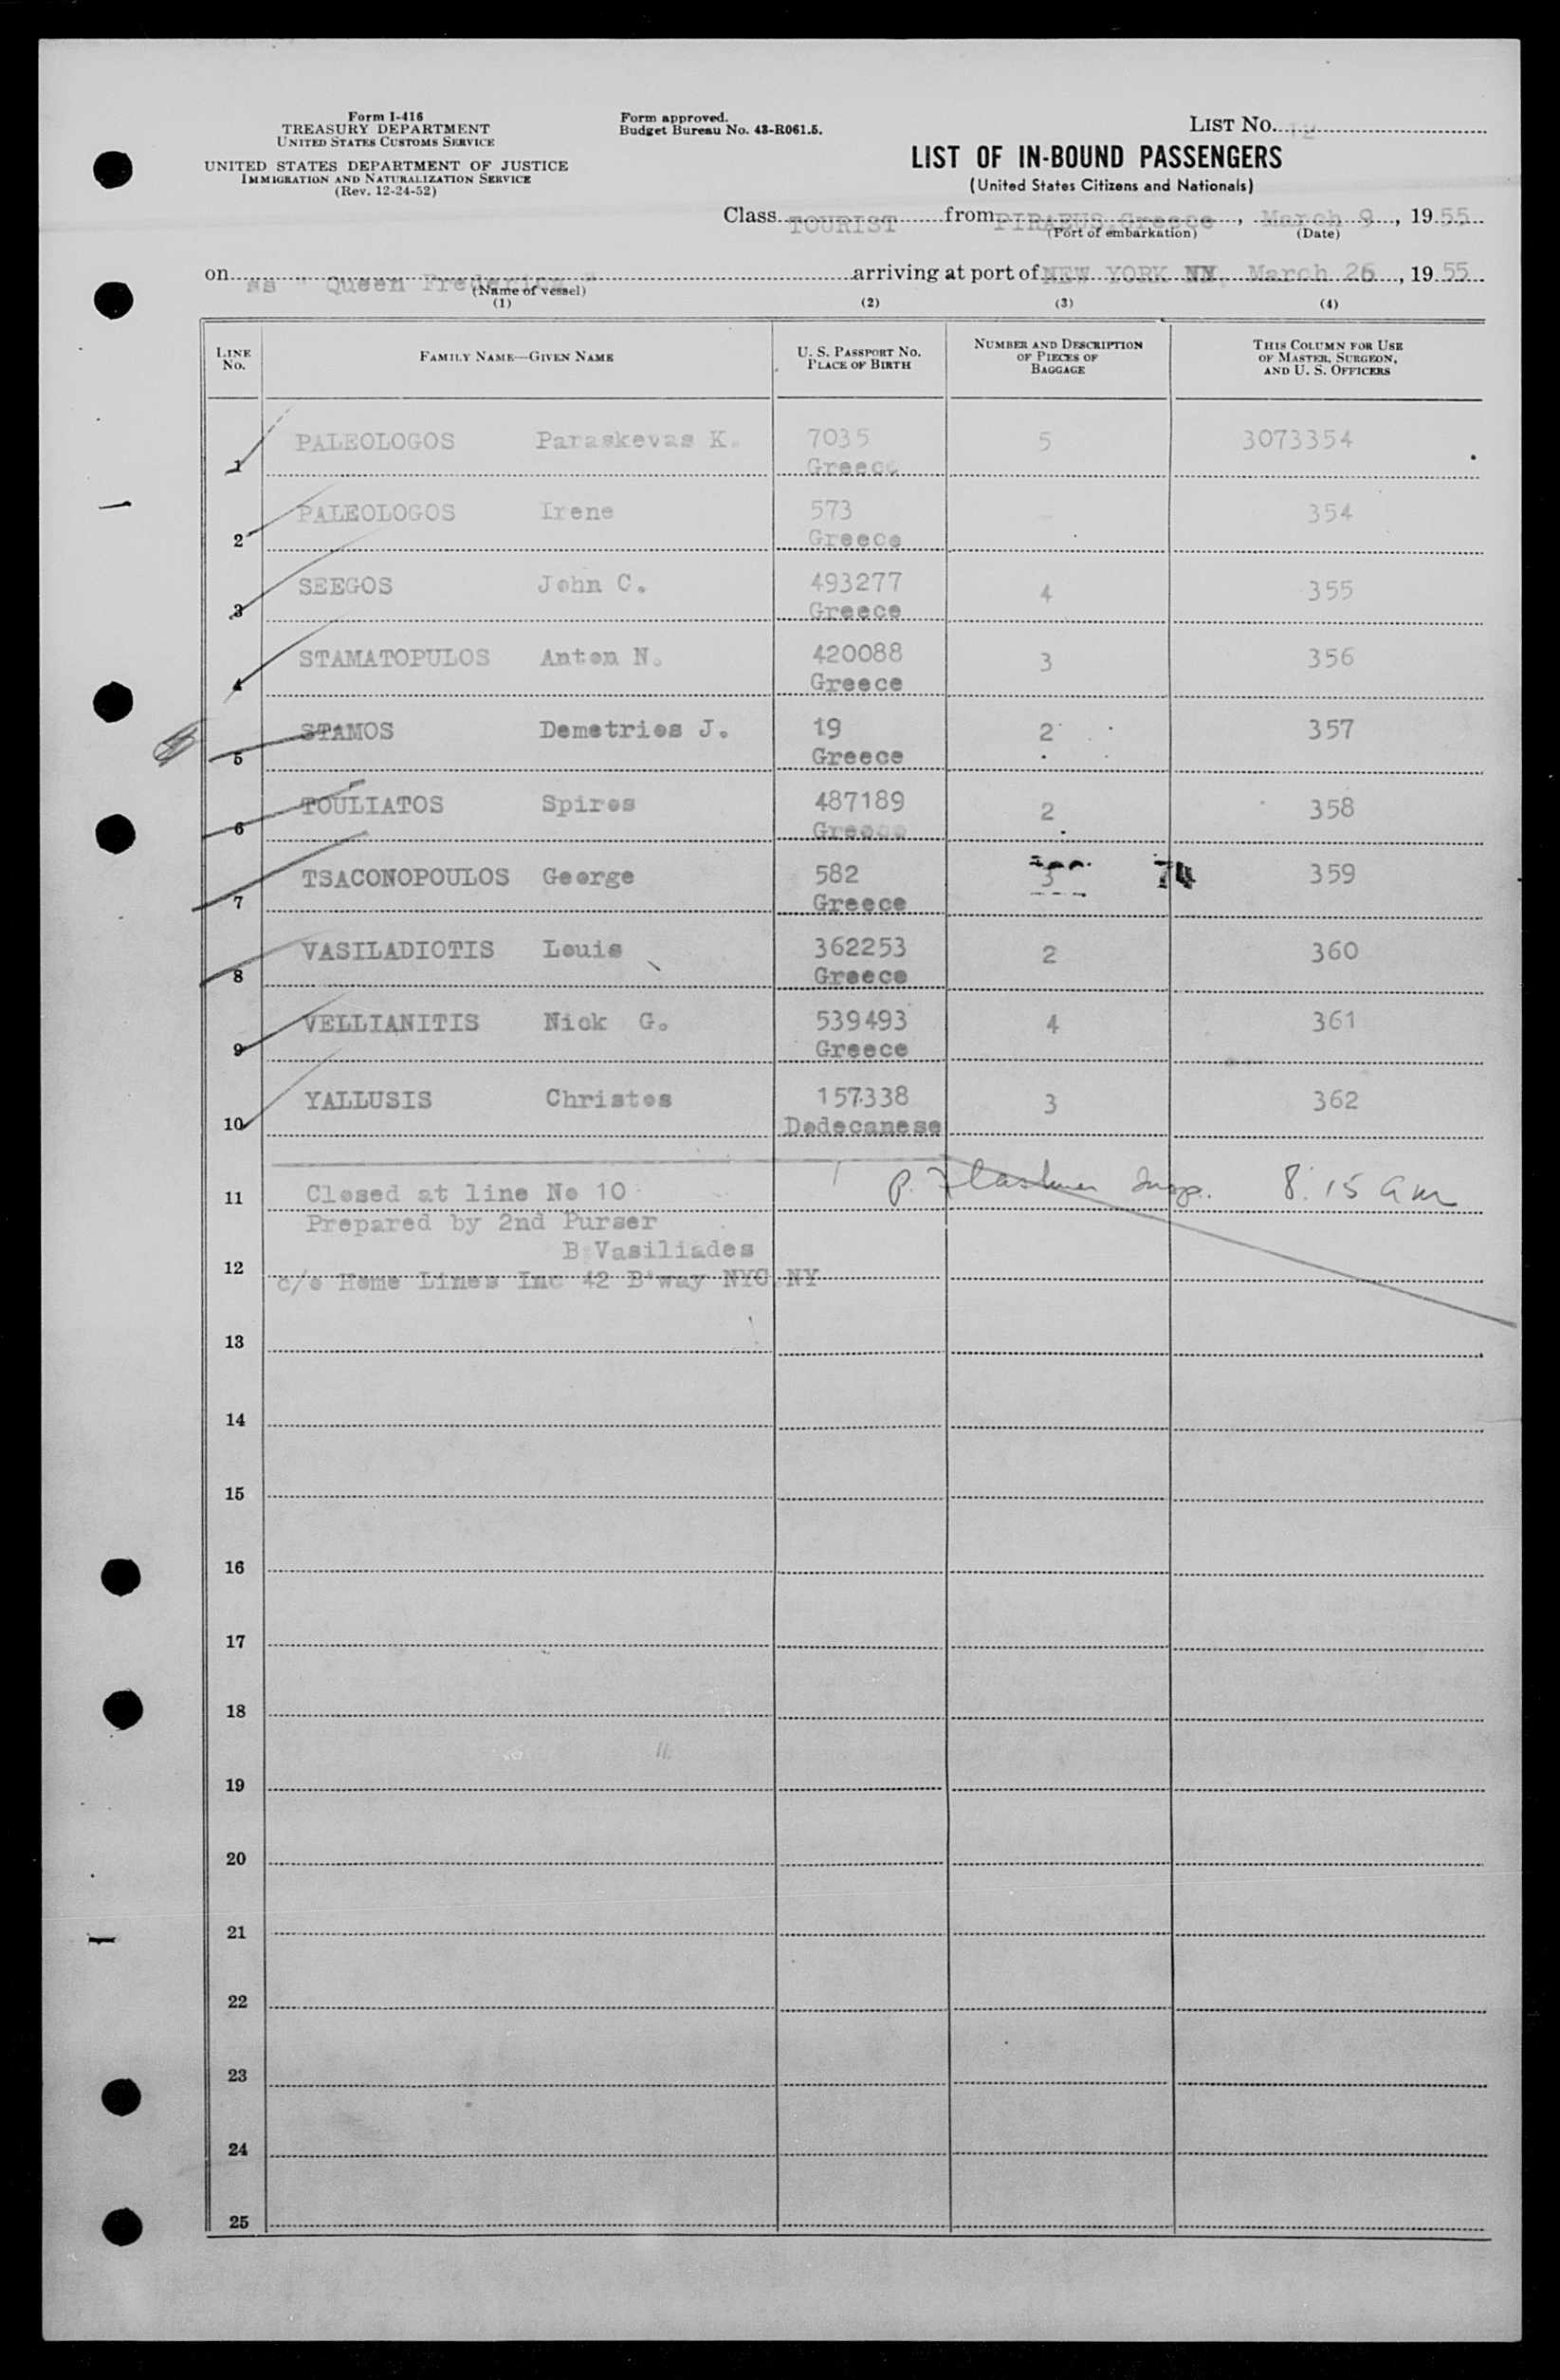 Form I-416
TREASURY DEPARTMENT
UNITED STATES CUSTOMS SERVICE
UNITED STATES DEPARTMENT OF JUSTICE
IMMIGRATION AND NATURALIZATION SERVICE
(Rev. 12-24-52)
Form approved.
Budget Bureau No. 43-R061.5.
LIST NO. 12
LIST OF IN-BOUND PASSENGERS
(United States Citizens and Nationals)
Class TOURIST from PIRAEUS, Greece, March 9, 1955
(Port of embarkation) (Date)
on ss " Queen Frederica " arriving at port of NEW YORK NY, March 26, 1955
(Name of vessel)
(1) (2) (3) (4)
LINE NO. FAMILY NAME—GIVEN NAME U. S. PASSPORT NO. PLACE OF BIRTH NUMBER AND DESCRIPTION OF PIECES OF BAGGAGE THIS COLUMN FOR USE OF MASTER, SURGEON, AND U. S. OFFICERS
1 PALEOLOGOS Paraskevas K. 7035 5 3073354
Greece
2 PALEOLOGOS Irene 573 354
Greece
3 SEEGOS John C. 493277 4 355
Greece
4 STAMATOPULOS Anton N. 420088 3 356
Greece
5 STAMOS Demetrios J. 19 2 357
Greece
6 TOULIATOS Spiros 487189 2 358
Greece
7 TSACONOPOULOS George 582 3 74 359
Greece
8 VASILADIOTIS Louis 362253 2 360
Greece
9 VELLIANITIS Nick G. 539493 4 361
Greece
10 YALLUSIS Christos 157338 3 362
Dodecanese
11 Closed at line No 10 P. Flashner Insp. 8:15 am
Prepared by 2nd Purser
B Vasiliades
12 c/o Home Lines Inc 42 B'way NYC NY
13
14
15
16
17
18
19
20
21
22
23
24
25